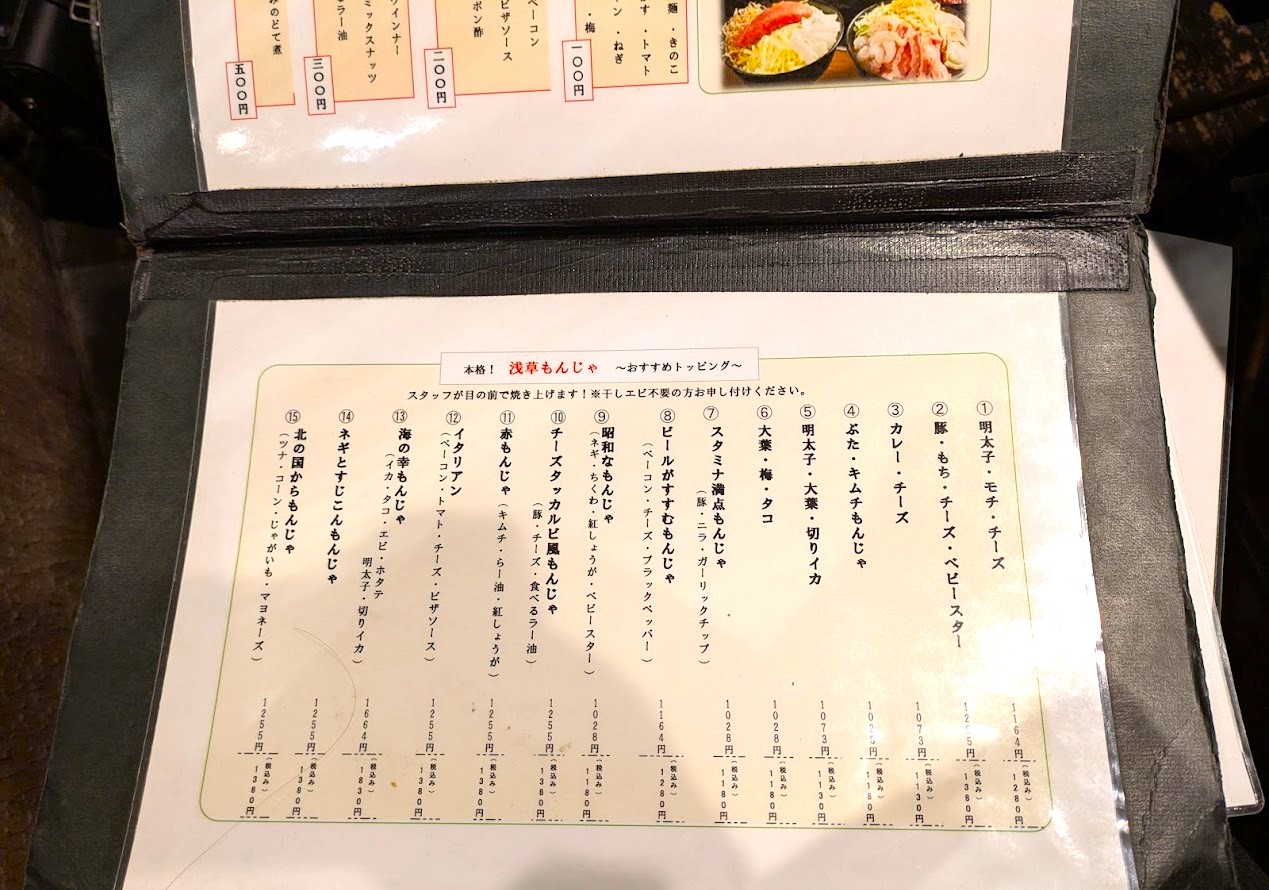 麺・きのこ
・トマト
・ねぎ
・梅
一〇〇円
ベーコン
ピザソース
ポン酢
二〇〇円
ウインナー
ミックスナッツ
ラー油
三〇〇円
のどて煮
五〇〇円
本格！ 浅草もんじゃ ～おすすめトッピング～
スタッフが目の前で焼き上げます！※干しエビ不要の方お申し付けください。
①明太子・モチ・チーズ
1164円
（税込み）1280円
②豚・もち・チーズ・ベビースター
1255円
（税込み）1380円
③カレー・チーズ
1073円
（税込み）1130円
④ぶた・キムチもんじゃ
1028円
（税込み）1180円
⑤明太子・大葉・切りイカ
1073円
（税込み）1130円
⑥大葉・梅・タコ
1028円
（税込み）1180円
⑦スタミナ満点もんじゃ
（豚・ニラ・ガーリックチップ）
1028円
（税込み）1180円
⑧ビールがすすむもんじゃ
（ベーコン・チーズ・ブラックペッパー）
1164円
（税込み）1280円
⑨昭和なもんじゃ
（ネギ・ちくわ・紅しょうが・ベビースター）
1028円
（税込み）1180円
⑩チーズタッカルビ風もんじゃ
（豚・チーズ・食べるラー油）
1255円
（税込み）1380円
⑪赤もんじゃ（キムチ・らー油・紅しょうが）
1255円
（税込み）1380円
⑫イタリアン
（ベーコン・トマト・チーズ・ピザソース）
1255円
（税込み）1380円
⑬海の幸もんじゃ
（イカ・タコ・エビ・ホタテ
明太子・切りイカ）
1664円
（税込み）1830円
⑭ネギとすじこんもんじゃ
1255円
（税込み）1380円
⑮北の国からもんじゃ
（ツナ・コーン・じゃがいも・マヨネーズ）
1255円
（税込み）1380円